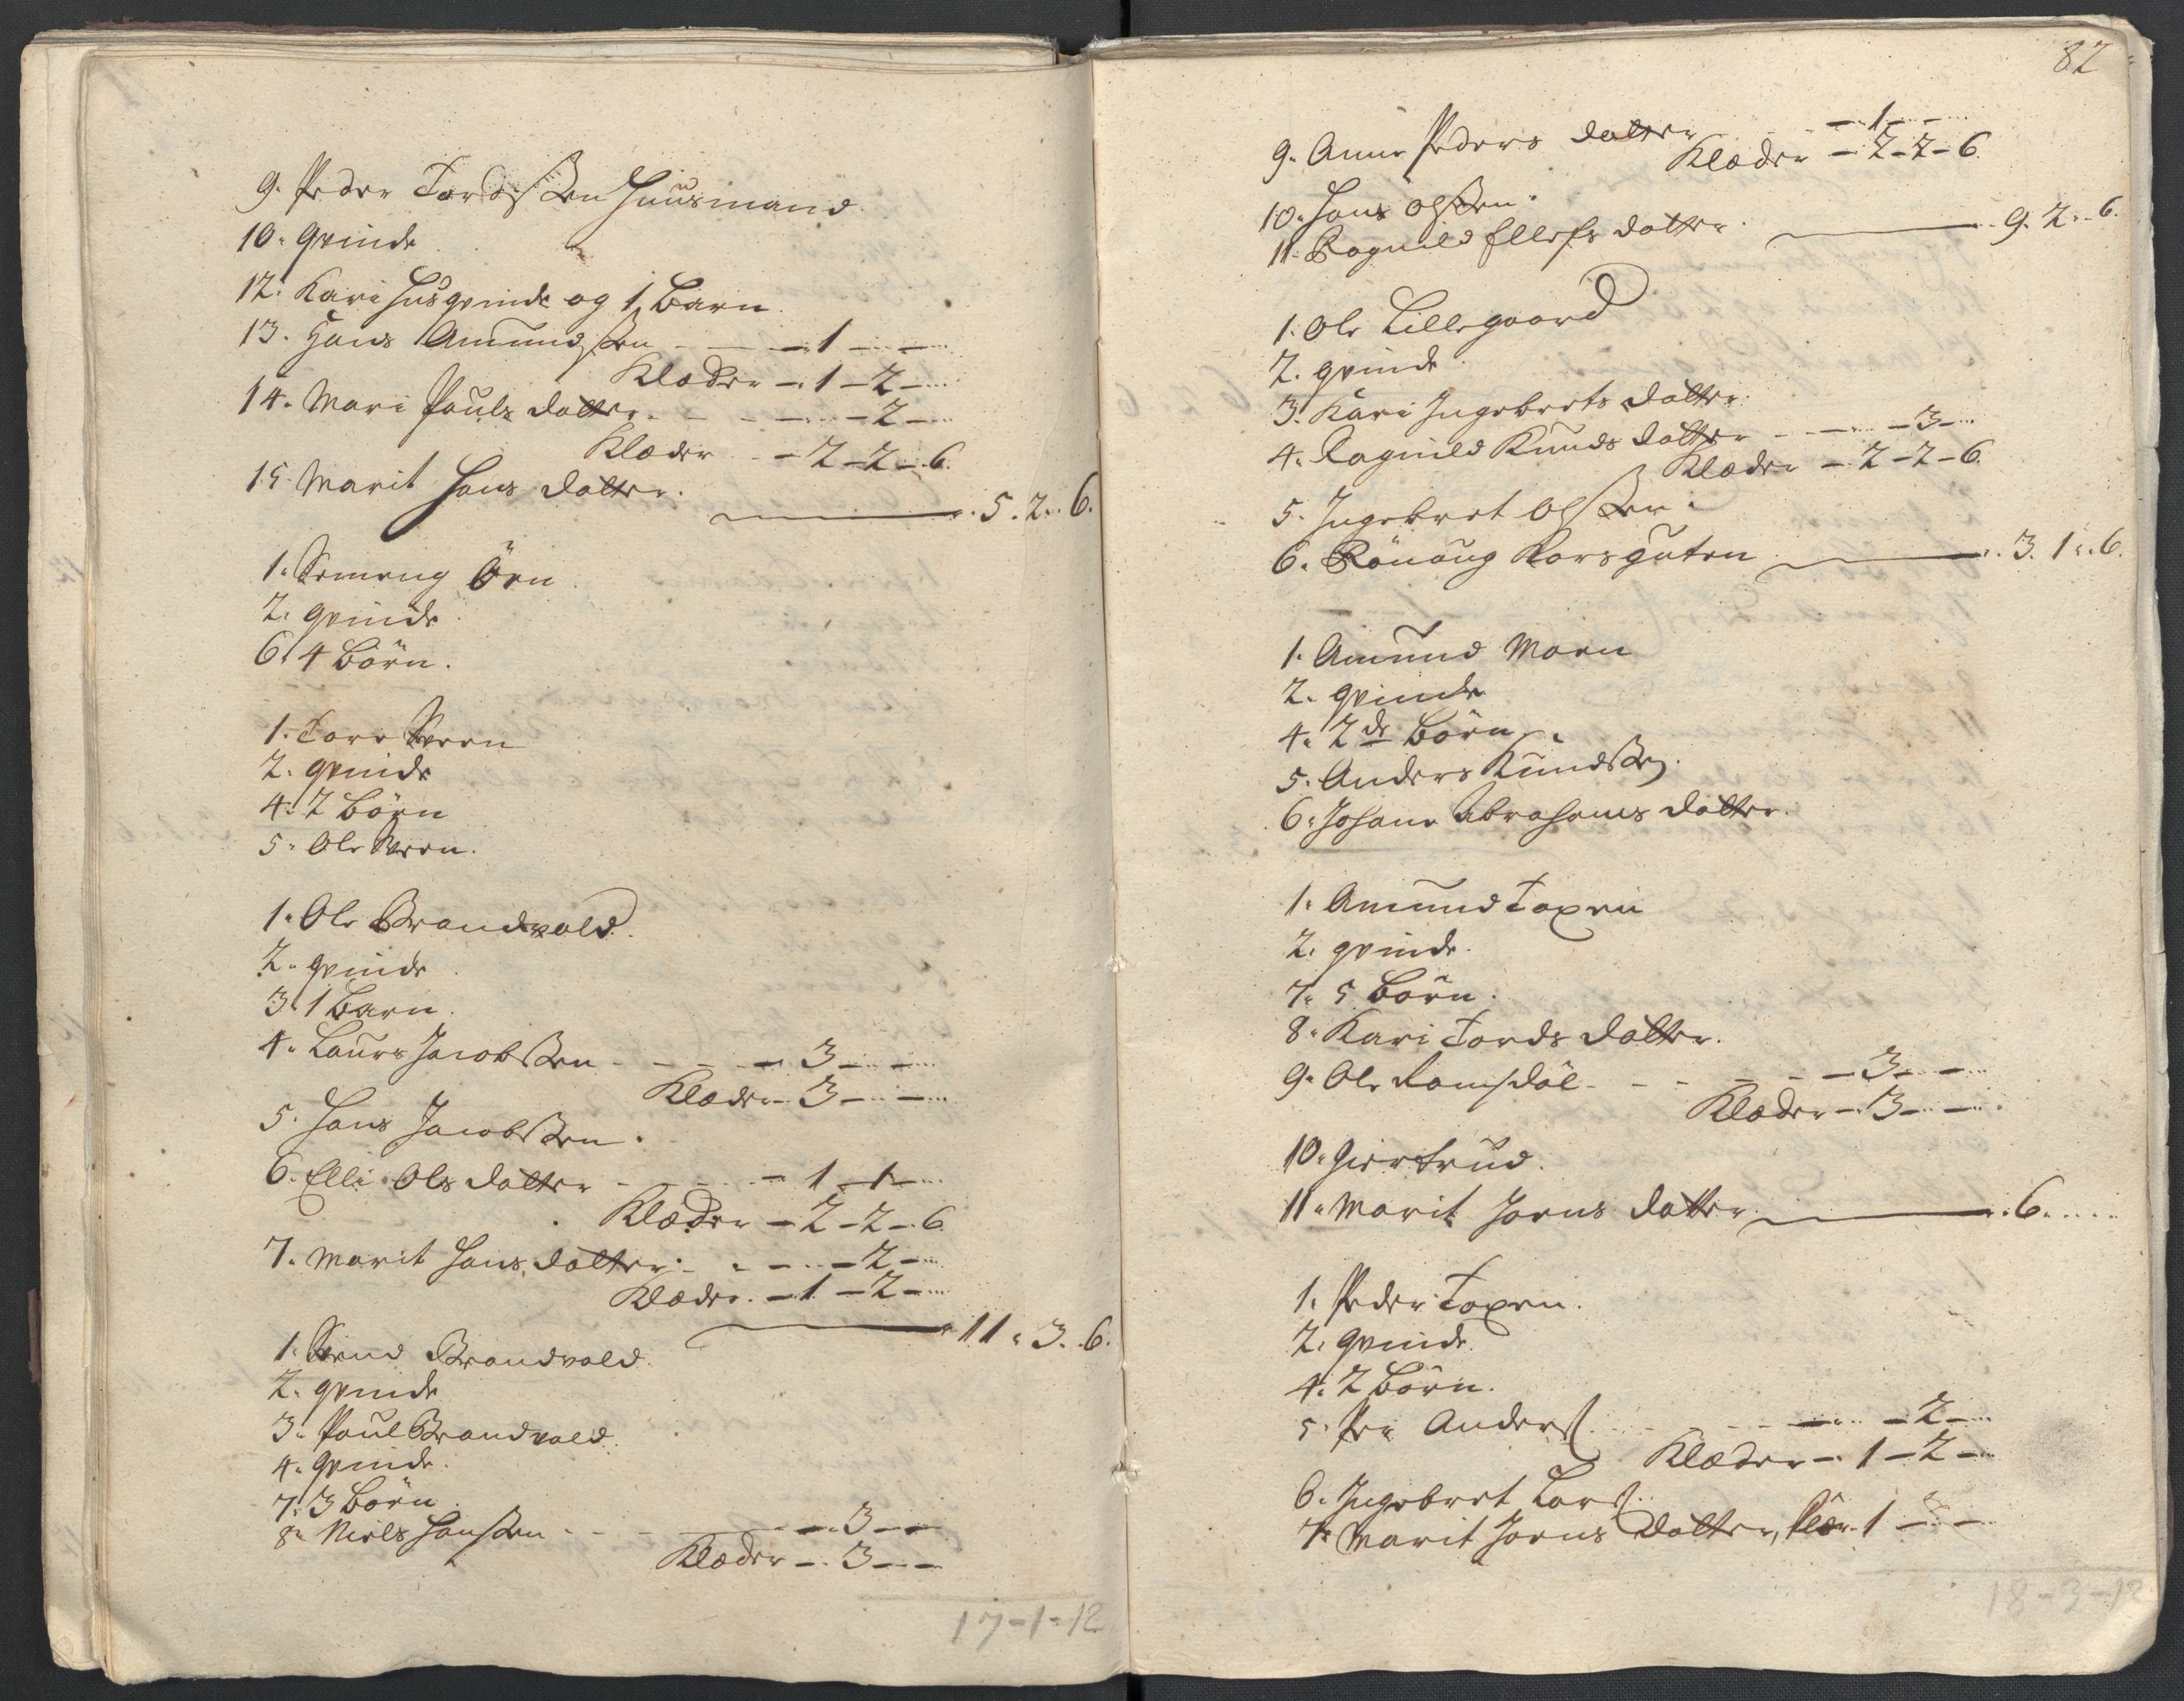 9. Peder Tordsßen Huusmand.
10. Qvinde
12. Kari Husqvinde og 1 Barn.
13. Hans Amundsßen - - 1 - -
Klæder - 1 - 2 -
14. Mari Pauls datter. - - - 2 -
Klæder - 2 - 2 - 6.
15. Marit Hans datter.
5. 2. 6.
1. Simeng Örn
2. qvinde
6. 4 Börn.
1. Tore Steen
2. qvinde
4. 2 Börn
5. Ole Steen.
1. Ole Brandvold.
2. qvinde
3. 1 Barn.
4. Laurs Jacobßen - - - 3 - -
Klæder - 3 - -
5. Hans Jacobßen.
6. Elli Ols datter - - - 1 - 1 -
Klæder - 2 - 2 - 6
7. Marit Hans datter. - - - 2 -
Klæder. - 1 - 2 -
11. 3. 6.
1. Svend Brandvold.
2. qvinde
3. Paul Brandvold.
4. Qvinde.
7. 3 Börn.
8. Niels Hansßen - - - 3 - -
Klæder - 3 - -
17-1-12
82
9. Anne Peders datter - 1 - -
Klæder - 2 - 2 - 6.
10. Hans Olsßen.
11. Ragnild Ellefs datter. 9. 2. 6.
1. Ole Lillegaard
2. qvinde
3. Kari Ingebrets datter.
4. Ragnild Knuds datter - - - 3 -
Klæder - 2 - 2 - 6.
5. Ingebret Olsßen.
6. Rönoug Korsguten 3. 1. 6.
1. Amund Moen
2. qvinde
4. 2de Börn.
5. Anders Knudsßen.
6. Johane Abrahams datter.
1. Amund Toxen
2. qvinde.
7. 5 Börn.
8. Kari Tords datter.
9. Ole Romsdöl - - - 3 - -
Klæder - 3 - -
10. Giertrud.
11. Marit Joens datter. 6.
1. Peder Toxen.
2. Qvinde.
4. 2 Börn.
5. Per Anders. - - - 2 -
Klæder - 1 - 2 -
6. Ingebret Lars.
7. Marit Joens datter, Klær 1 - -
18-3-12